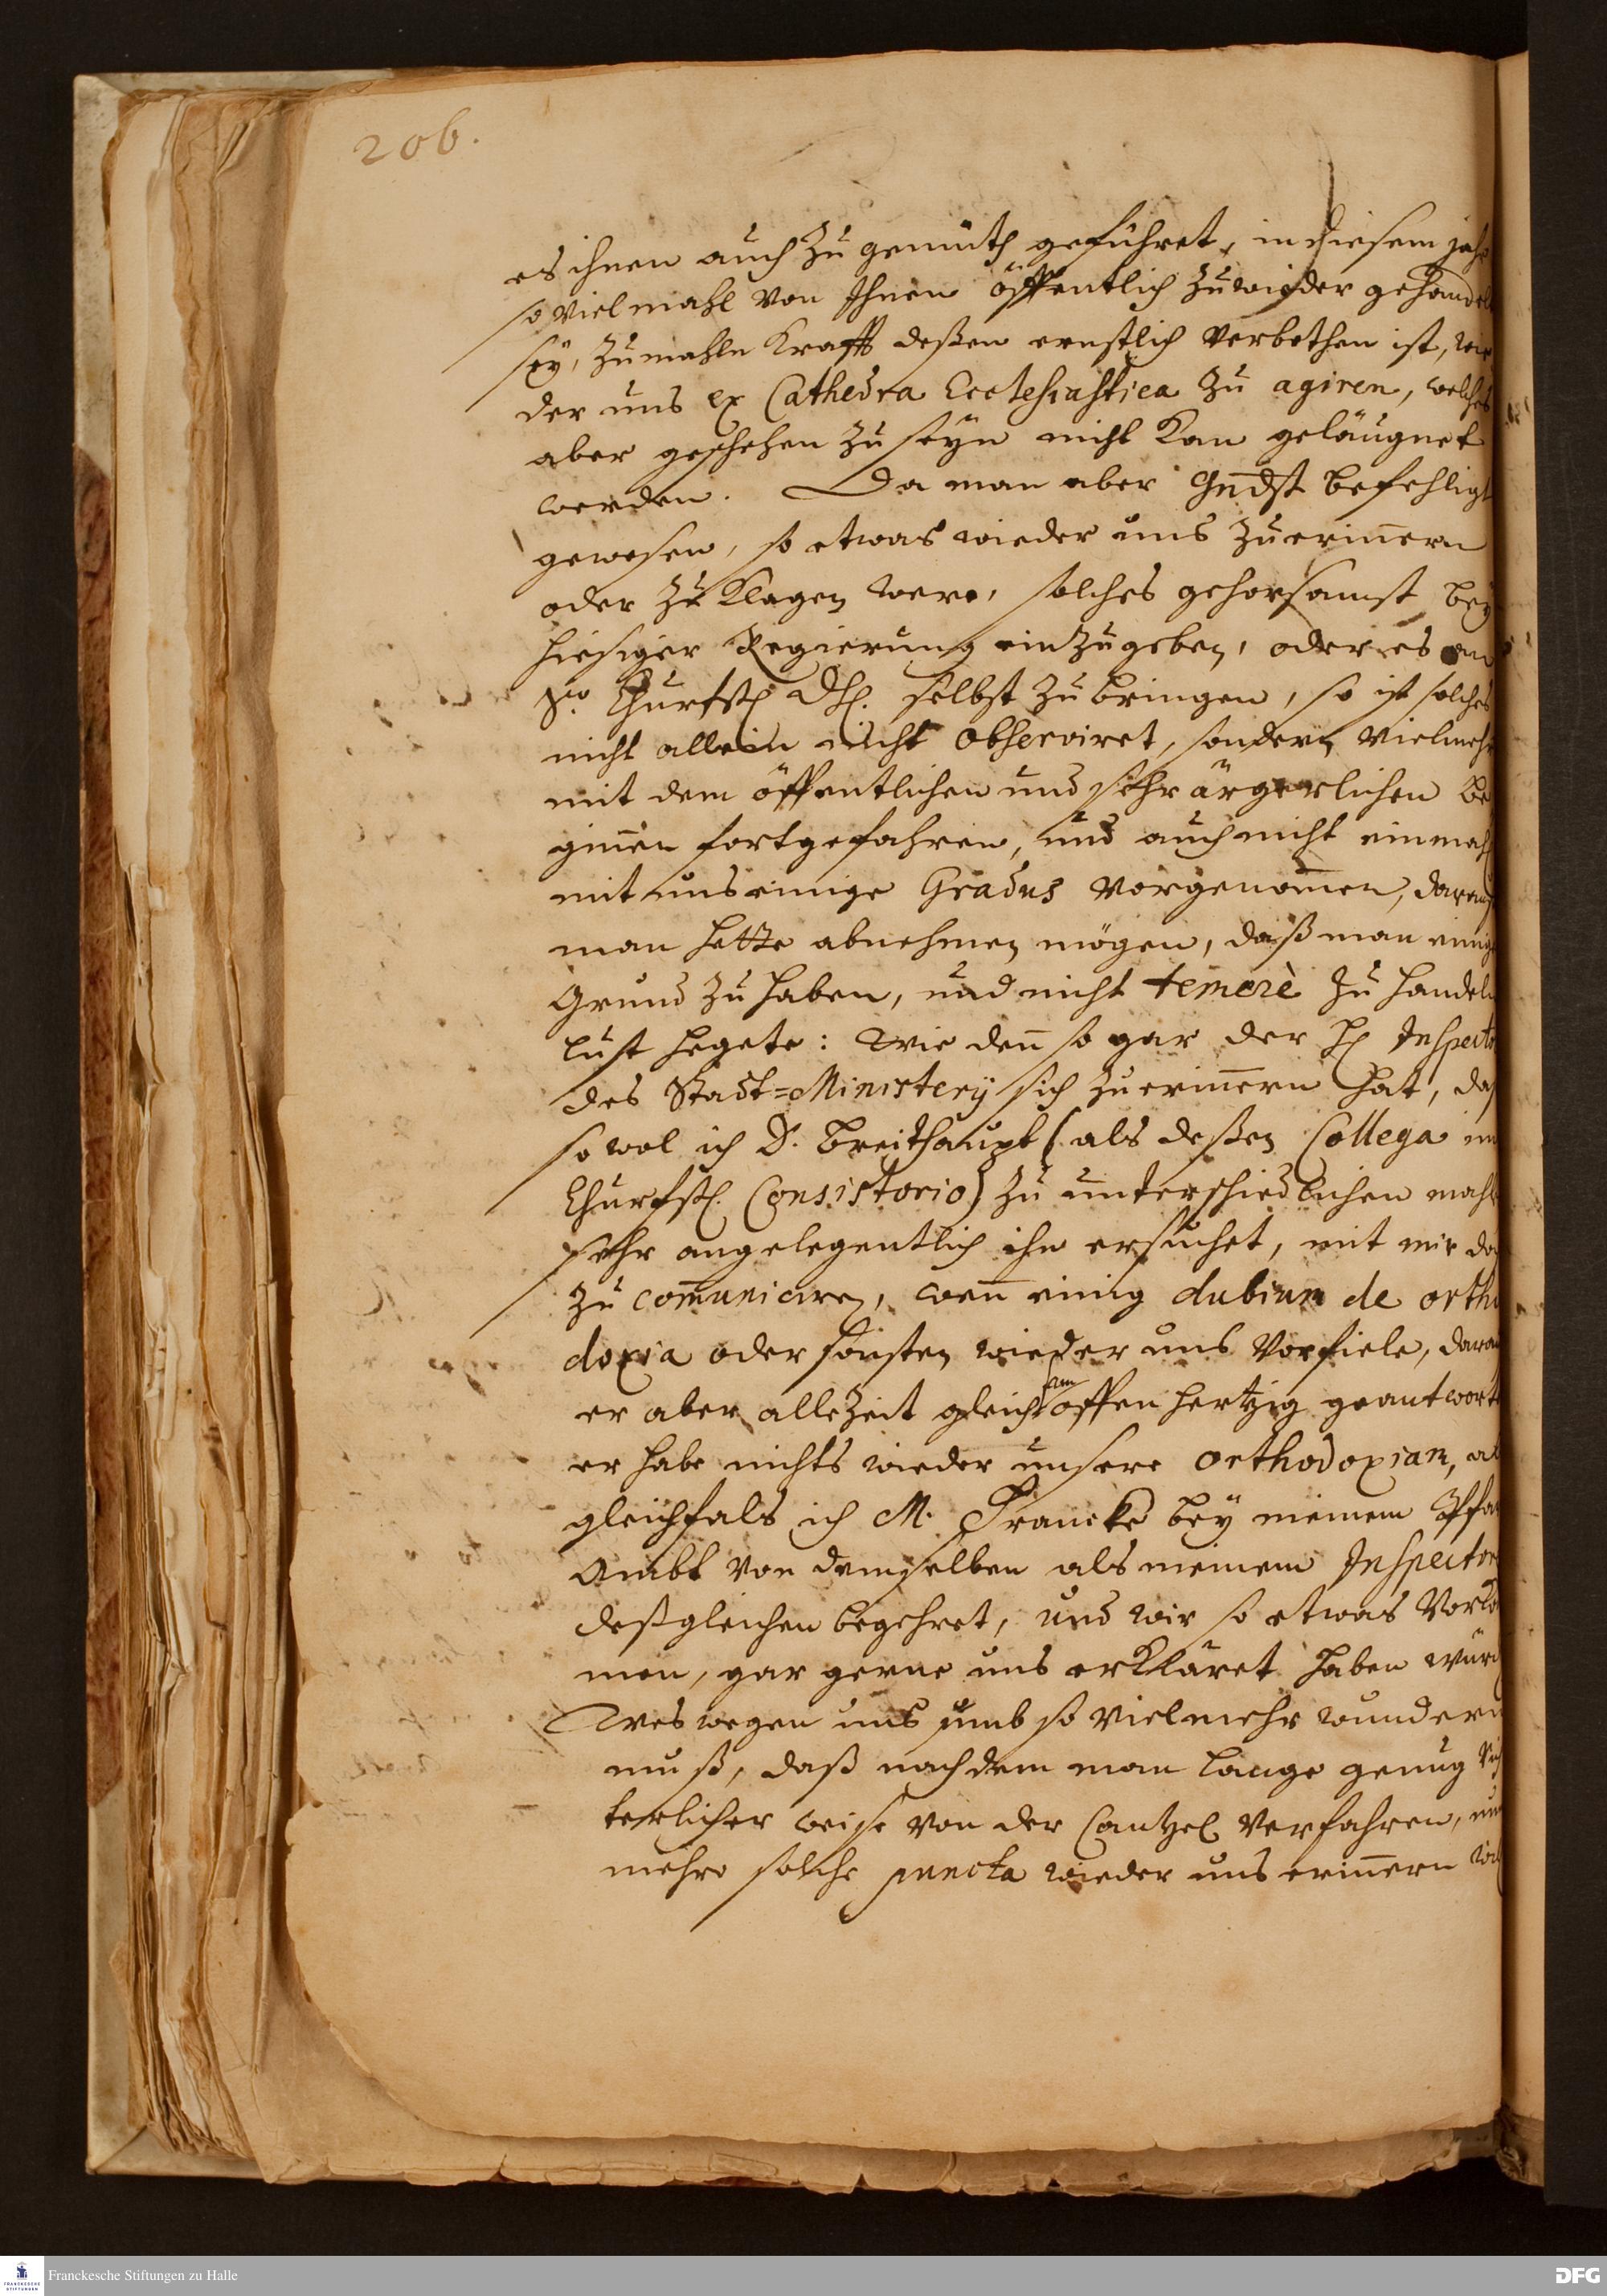 206.
es ihnen auch zu gemüth geführet, in diesem jahr
so viel mahl von Ihnen öffentlich zuwieder gehandelt
sey, zumahln Krafft deßen ernstlich verbothen ist, wie
der uns ex Cathedra Ecclesiastica zu agiren, welches
aber geschehen zu seyn nicht kan geläugnet
werden. Da man aber Gndst befehligt
gewesen, so etwas wieder uns zu erin̄ern
oder zu klagen were, solches gehorsamst bey
hiesiger Regierung einzugeben, oder es an
Sr. Churfstl Dhl. selbst zu bringen, so ist solches
nicht allein nicht observiret, sondern vielmehr
mit dem öffentlichen und sehr ärgerlichen be
gin̄en fortgefahren, und auch nicht einmahl
mit uns einige Gradus vorgenom̄en, daraus
man hette abnehmen mögen, daß man einige
Grund zu haben, und nicht temerè zu handeln
lust hegete: Wie den̄ so gar der H. Inspector
des Stadt=Ministerij sich zu erin̄ern hat, daß
so wol ich D. Breithaupt (als deßen Collega im
Churfstl. Consistorio) zu unterschiedlichen mahlen
sehr angelegentlich ihn ersuchet, mit mir da
zu com̄uniciren, wen̄ einig dubium de ortho
doxia oder sonsten wieder uns vorfiele, darau
er aber allezeit gleichsam offenhertzig geantwortet
er habe nichts wieder unsere Orthodoxiam, al
gleichfals ich M. Francke bey meinem Pfar
Ambt von demselben als meinem Inspectore
deßgleichen begehret, und wir so etwas vorko
men, gar gerne uns erkläret haben würd
Wes wegen uns umb so vielmehr wundern
muß, daß nachdem man lange genug rich
terlicher weise von der Cantzel verfahren, nun
mehro solche puncta wieder uns erin̄ern wil
Franckesche Stiftungen zu Halle
FRANCKESCHE
STIFTUNGEN
DFG